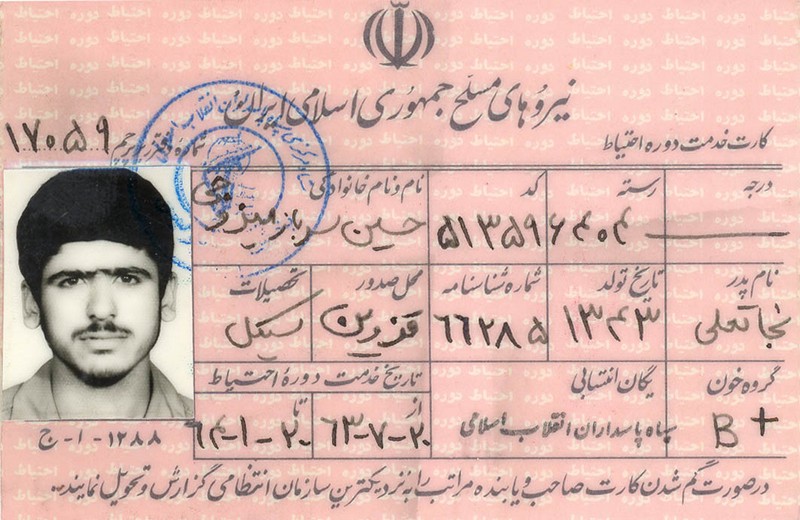 نیروهای مسلح جمهوری اسلامی ایران
کارت خدمت دوره احتیاط
شماره دفترچه ۱۷۰۵۹
درجه
رسته ۶۴۰۴
کد ۵۱۳۵۹
نام و نام خانوادگی حسین
نام پدر نجاتعلی
تاریخ تولد ۱۳۴۳
شماره شناسنامه ۶۶۲۸۵
محل صدور قزوین
تحصیلات سیکل
گروه خون B+
یگان انتسابی سپاه پاسداران انقلاب اسلامی
تاریخ خدمت دورهٔ احتیاط
از ۶۳-۷-۲۰
تا ۶۴-۱-۲۰
۱۲۸۸-ا-ج
درصورت گم شدن کارت صاحب و یابنده مراتب را به نزدیکترین سازمان انتظامی گزارش و تحویل نمایند.